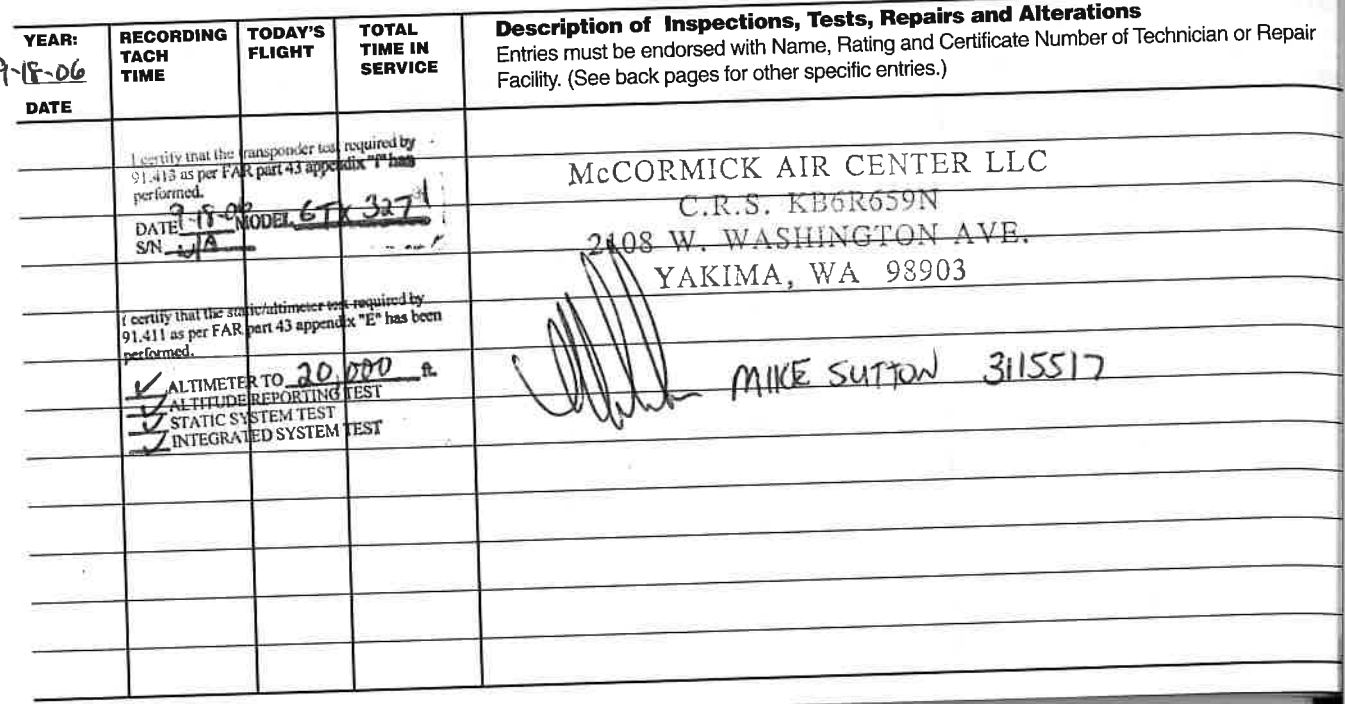 YEAR:
9-18-06
DATE
RECORDING
TACH
TIME
TODAY'S
FLIGHT
TOTAL
TIME IN
SERVICE
Description of Inspections, Tests, Repairs and Alterations
Entries must be endorsed with Name, Rating and Certificate Number of Technician or Repair
Facility. (See back pages for other specific entries.)
I certify that the transponder test required by
91.413 as per FAR part 43 appendix "F" has
performed.
DATE 9-18-06 MODEL GTX 327
S/N N/A
I certify that the static/altimeter test required by
91.411 as per FAR part 43 appendix "E" has been
performed.
ALTIMETER TO 20,000 ft.
ALTITUDE REPORTING TEST
STATIC SYSTEM TEST
INTEGRATED SYSTEM TEST
McCORMICK AIR CENTER LLC
C.R.S. KB6R659N
2108 W. WASHINGTON AVE.
YAKIMA, WA 98903
MIKE SUTTON 3115517